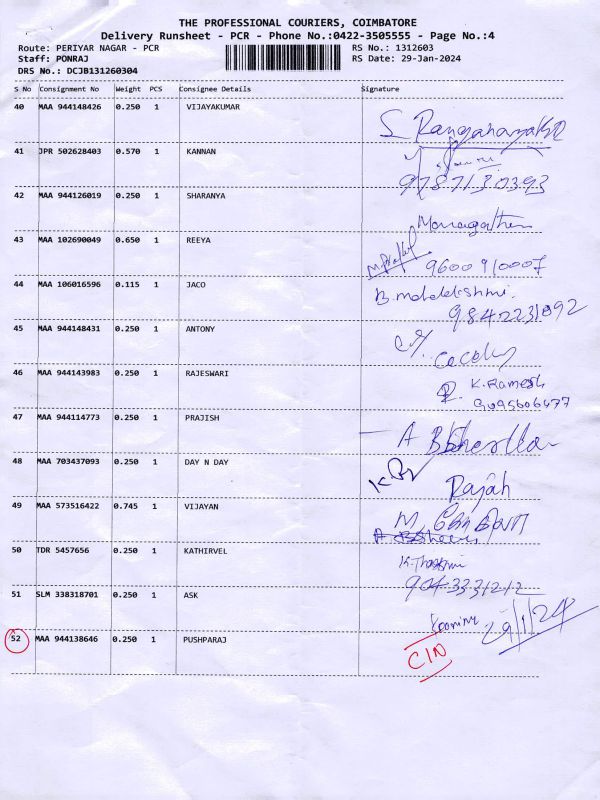 THE PROFESSIONAL COURIERS, COIMBATORE
Delivery Runsheet - PCR - Phone No.:0422-3505555 - Page No.:4
Route: PERIYAR NAGAR - PCR RS No.: 1312603
Staff: PONRAJ RS Date: 29-Jan-2024
DRS No.: DCJB131260304
S No Consignment No Weight PCS Consignee Details Signature
40 MAA 944148426 0.250 1 VIJAYAKUMAR
41 JPR 502628403 0.570 1 KANNAN
9787130393
42 MAA 944126019 0.250 1 SHARANYA
43 MAA 102690049 0.650 1 REEYA
9600910007
44 MAA 106016596 0.115 1 JACO
9842231092
45 MAA 944148431 0.250 1 ANTONY
46 MAA 944143983 0.250 1 RAJESWARI
K. Ramesh
9095606477
47 MAA 944114773 0.250 1 PRAJISH
48 MAA 703437093 0.250 1 DAY N DAY
Rajah
49 MAA 573516422 0.745 1 VIJAYAN
50 TDR 5457656 0.250 1 KATHIRVEL
51 SLM 338318701 0.250 1 ASK
29/1/24
52 MAA 944138646 0.250 1 PUSHPARAJ